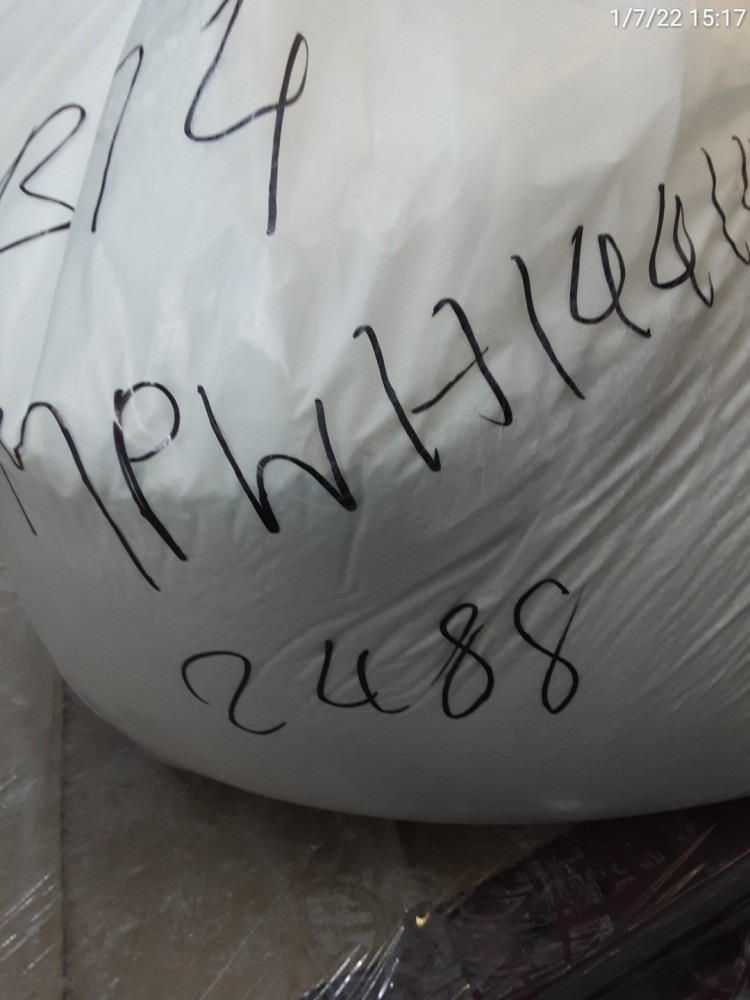 1/7/22 15:17
B14
MPWH144
2488